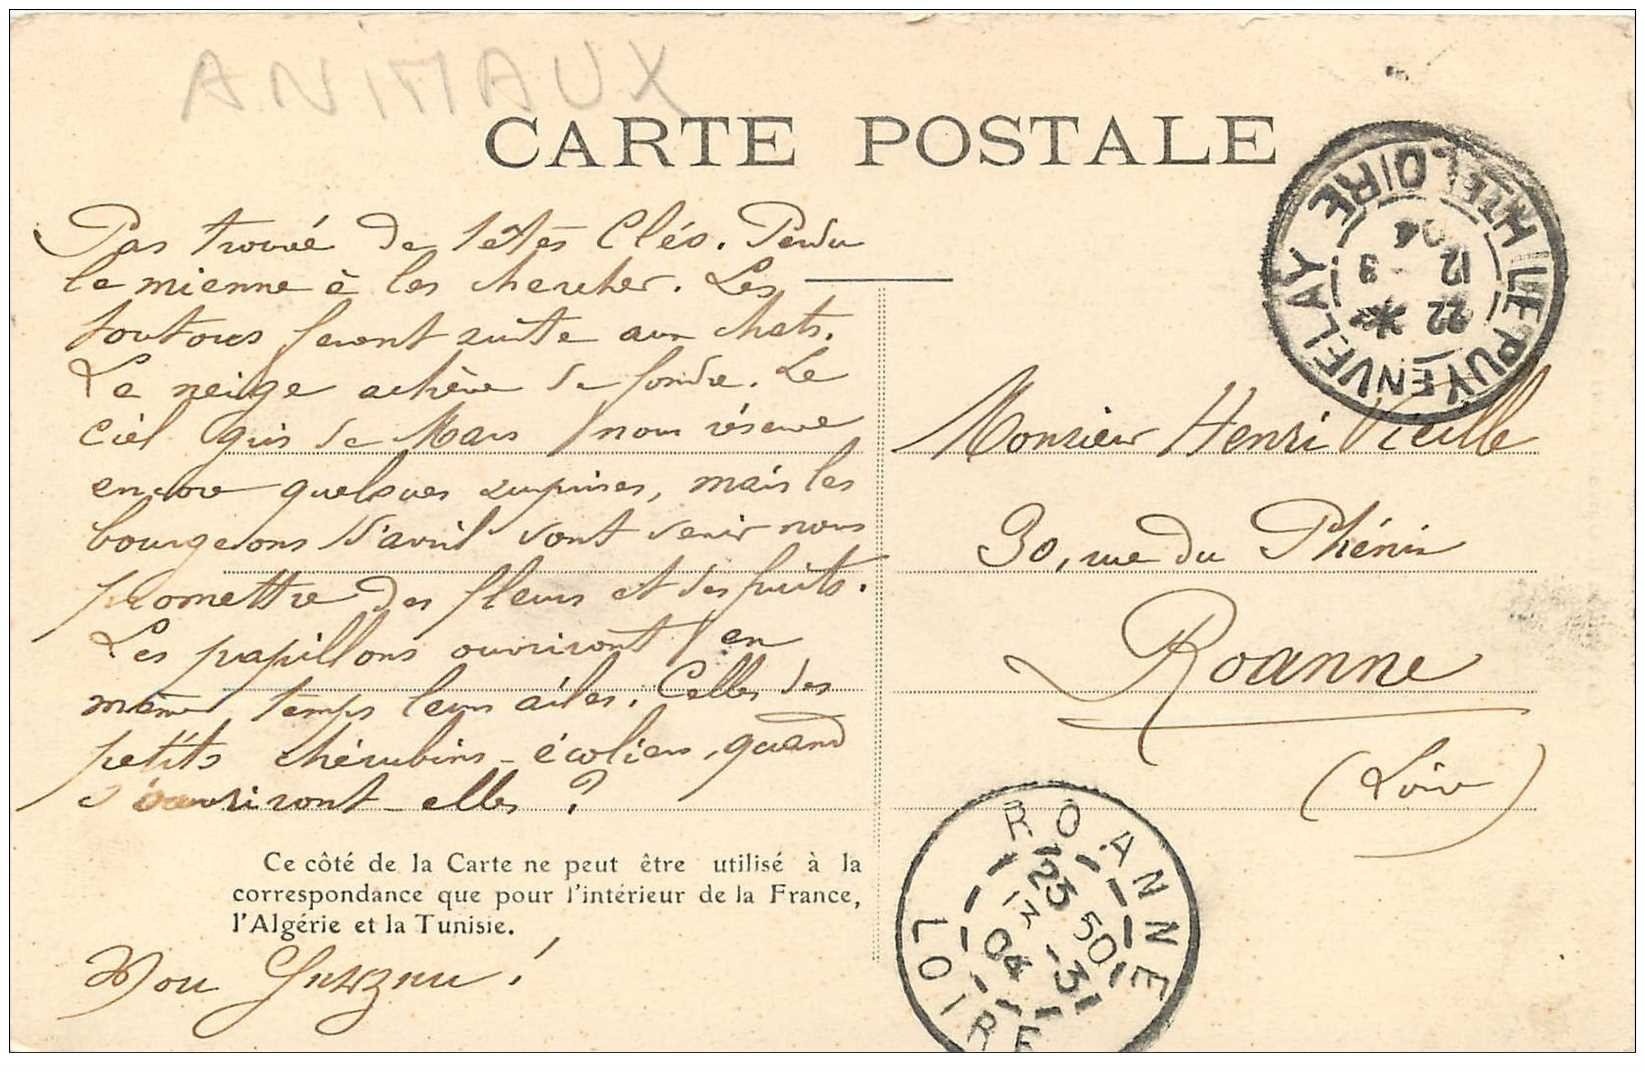 ANIMAUX
CARTE POSTALE
LE PUY EN VELAY
HTE LOIRE
22 *
12 3
04
Pas trouvé de têtes Clés. Perdu
la mienne à les chercher. Les
toutous feront suite aux chats.
La neige achève de fondre. Le
ciel gris de Mars nous réserve
encore quelques surprises, mais les
bourgeons d'avril vont venir nous
promettre des fleurs et des fruits.
Les papillons ouvriront en
même temps leurs ailes. Celles des
petits chérubins - écoliers, quand
s'ouvriront-elles ?
Ce côté de la Carte ne peut être utilisé à la
correspondance que pour l'intérieur de la France,
l'Algérie et la Tunisie.
Monsieur Henri
30, rue du Phénix
Roanne
(Loire)
ROANNE
23 50
12 -3
04
LOIRE